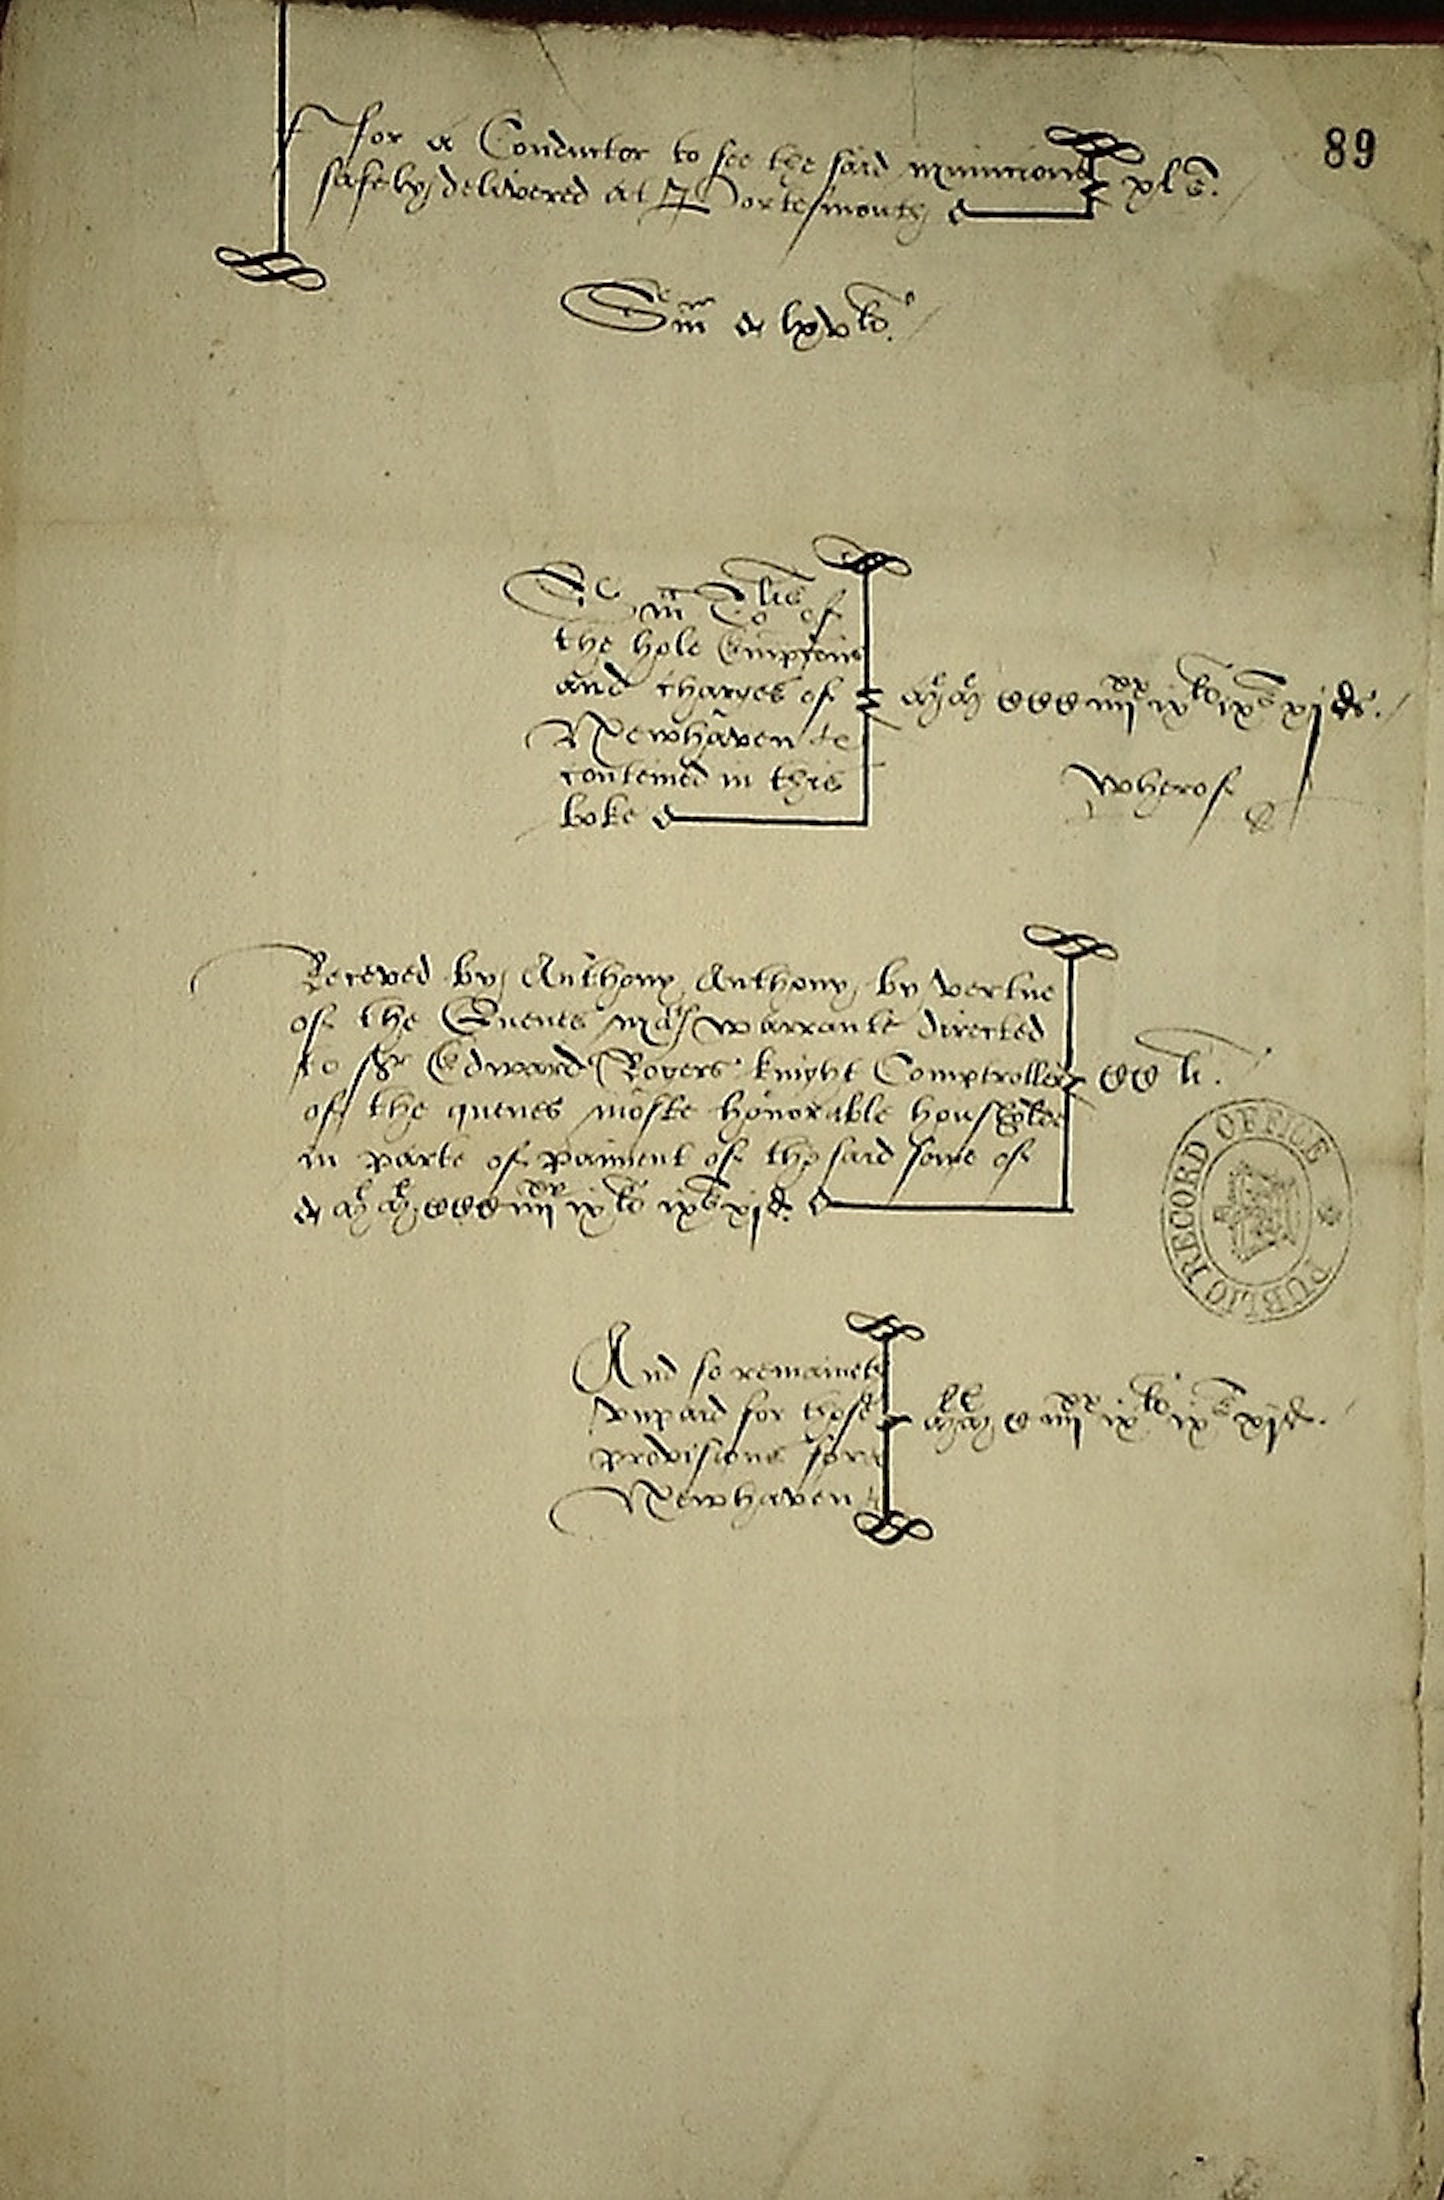 89
for a Conductor to see the said municions
safely delivered at Portesmouth xl s.
Sm̄ a lxv li.
Sm̄ Tolis of
the hole Empcions
and charges of
Newhaven
conteined in this
boke
iiij xx ix li ix s xj d.
wherof
Receved by Anthony Anthony by vertue
of the Quenes maᵗˢ warrante directed
to Sr Edward Rogers knight Comptroller
of the quenes moste honorable housholde
CC li.
in parte of paiment of the said some of
CCC iiij xx ix li ix s xj d.
And so remaineth
vnpaid for those
provisions for
Newhaven
C iiij xx ix li ix s xj d.
PUBLIC RECORD OFFICE